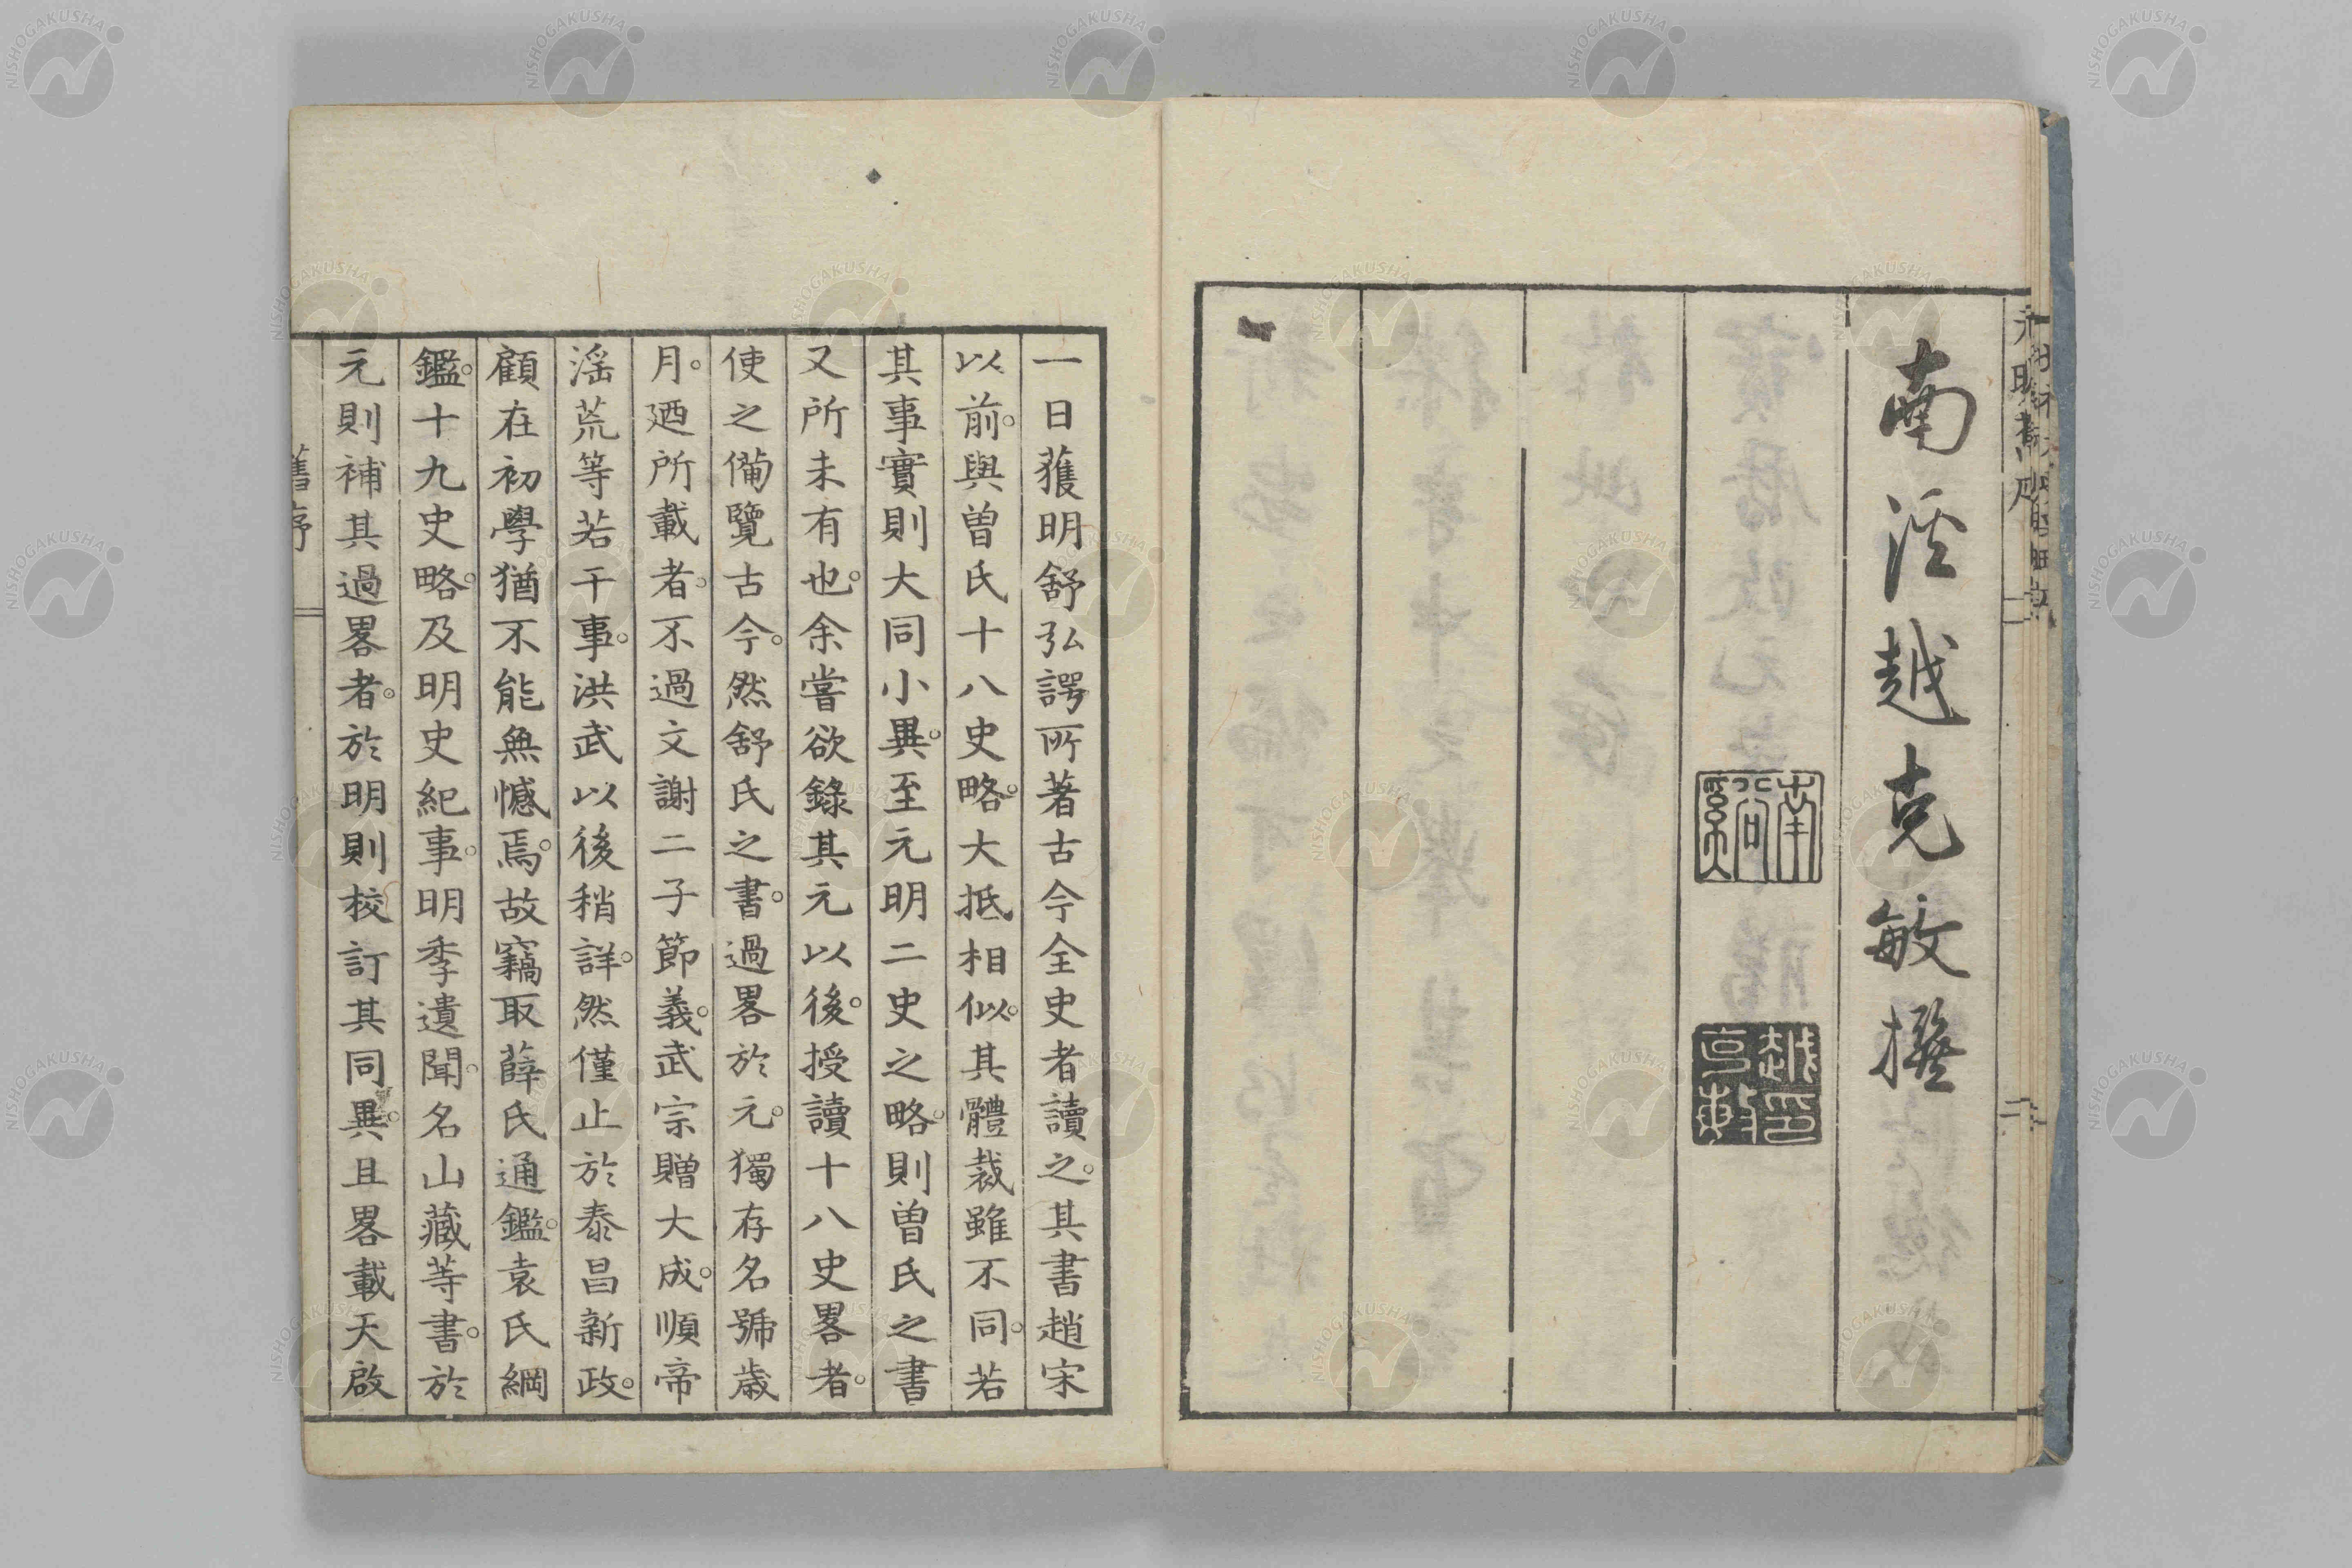 南溪越克敏撰
南谿
一日獲明舒弘諤所著古今全史者讀之。其書趙宋
以前。與曽氏十八史略。大抵相似。其體裁雖不同。若
其事實則大同小異。至元明二史之略。則曽氏之書
又所未有也。余嘗欲錄其元以後。授讀十八史畧者。
使之備覽古今。然舒氏之書。過畧於元。獨存名號歳
月。廼所載者。不過文謝二子節義。武宗贈大成。順帝
滛荒等若干事。洪武以後稍詳。然僅止於泰昌新政。
顧在初學猶不能無憾焉。故竊取薛氏通鑑。袁氏綱
鑑。十九史略。及明史紀事。明季遺聞。名山藏等書。於
元則補其過畧者。於明則校訂其同異。且畧載天啟
舊序
NISHOGAKUSHA